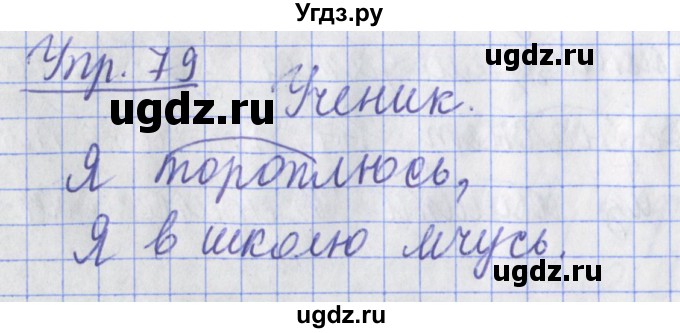 Угдз.ру
ugdz.ru
Упр. 79
ugdz.ru
Ученик.
Я тороплюсь,
ugdz.ru
Я в школю мчусь.
ugdz.ru
ugdz.ru